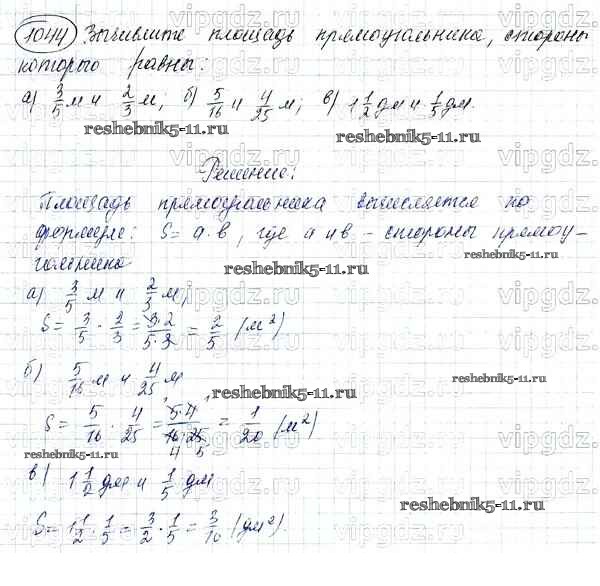 1044 Вычислите площадь прямоугольника, стороны
которого равны:
а) 3/5 м и 2/3 м; б) 5/16 и 4/25 м; в) 1 1/2 дм и 1/5 дм.
reshebnik5-11.ru reshebnik5-11.ru
Решение:
Площадь прямоугольника вычисляется по
формуле: S = a·b, где a и b – стороны прямоу-
гольника
reshebnik5-11.ru
а) 3/5 м и 2/3 м,
S = 3/5 · 2/3 = 3·2/5·3 = 2/5 (м²)
б) 5/16 м и 4/25 м
reshebnik5-11.ru
S = 5/16 · 4/25 = 5·4/16·25 = 1/20 (м²)
4 5
reshebnik5-11.ru
в) 1 1/2 дм и 1/5 дм
reshebnik5-11.ru
S = 1 1/2 · 1/5 = 3/2 · 1/5 = 3/10 (дм²).
vipgdz.ru